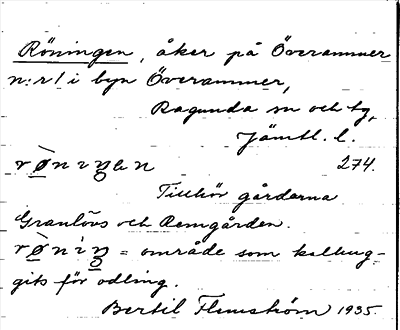 Röningen, åker på Överammer
n:r 1 i byn Överammer,
Ragunda sn och tg,
Jämtl. l.
274.
Tillhör gårdarna
Granlövs och Remgården.
= område som kalhug-
gits för odling.
Bertil Flemström 1935.